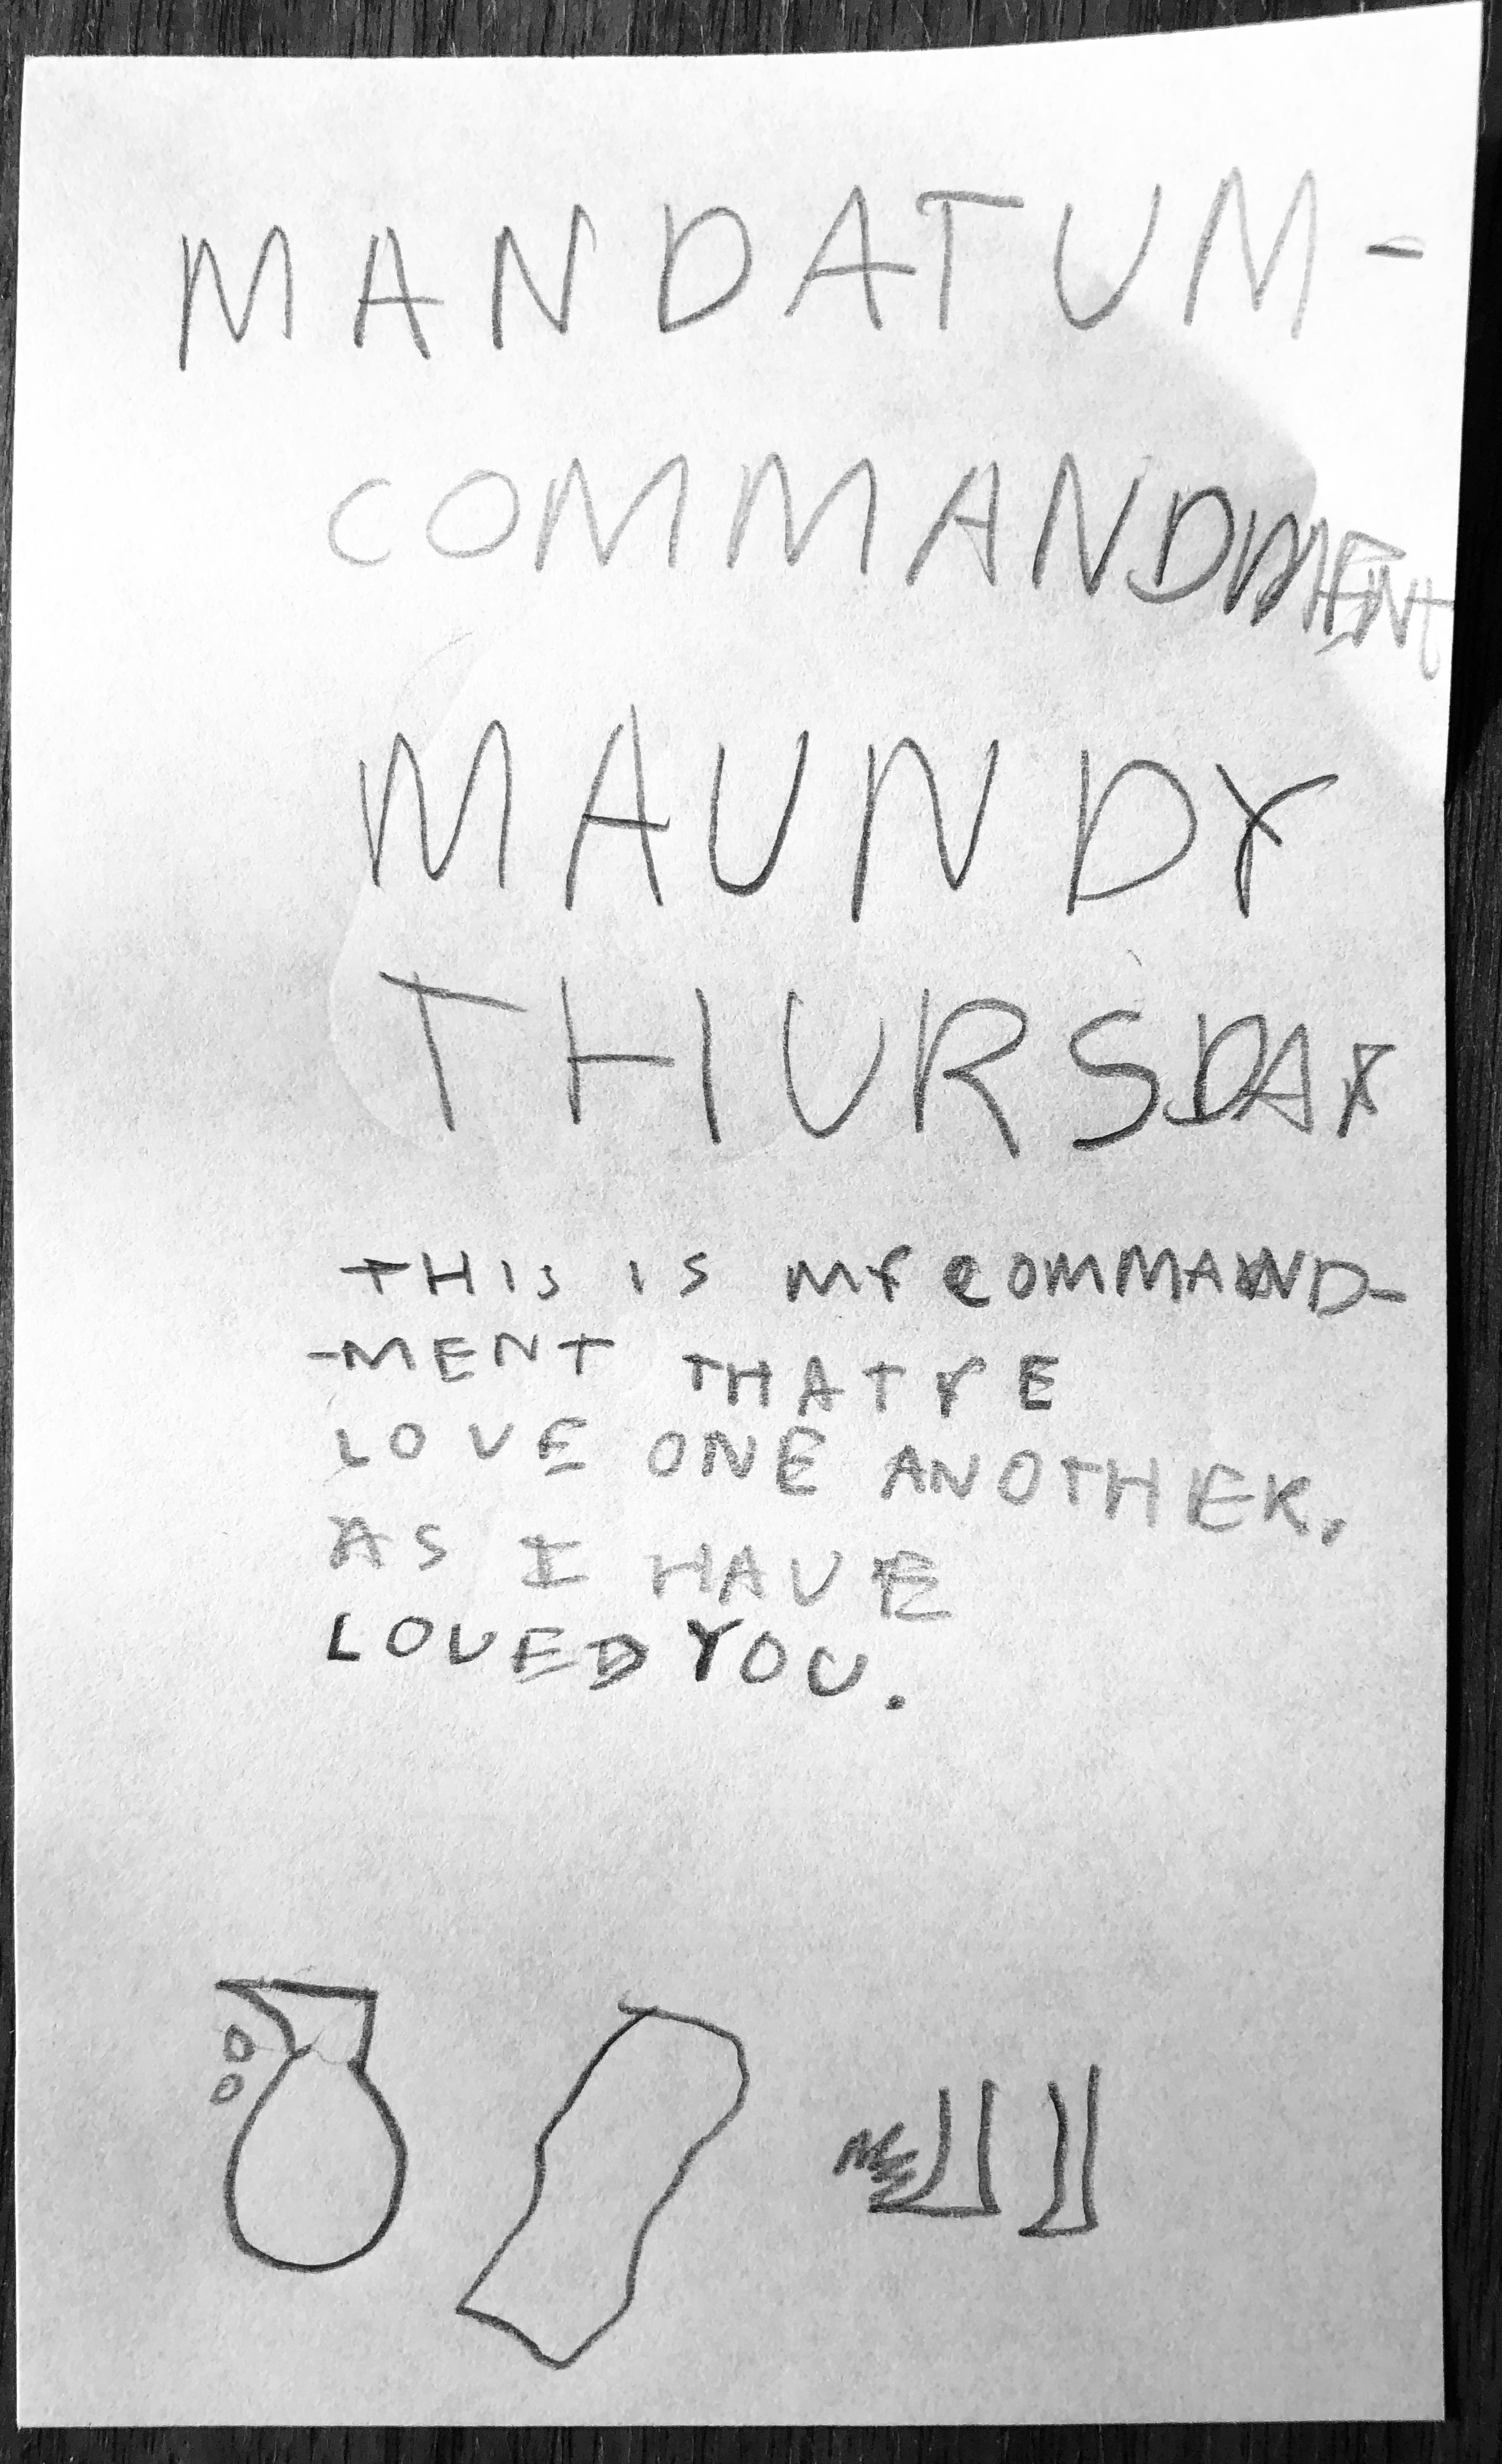 MANDATUM-
COMMANDMENT
MAUNDY
THIURSDAY
THIS IS MY COMMAND-
-MENT THAT YE
LOVE ONE ANOTHER,
AS I HAVE
LOVED YOU.